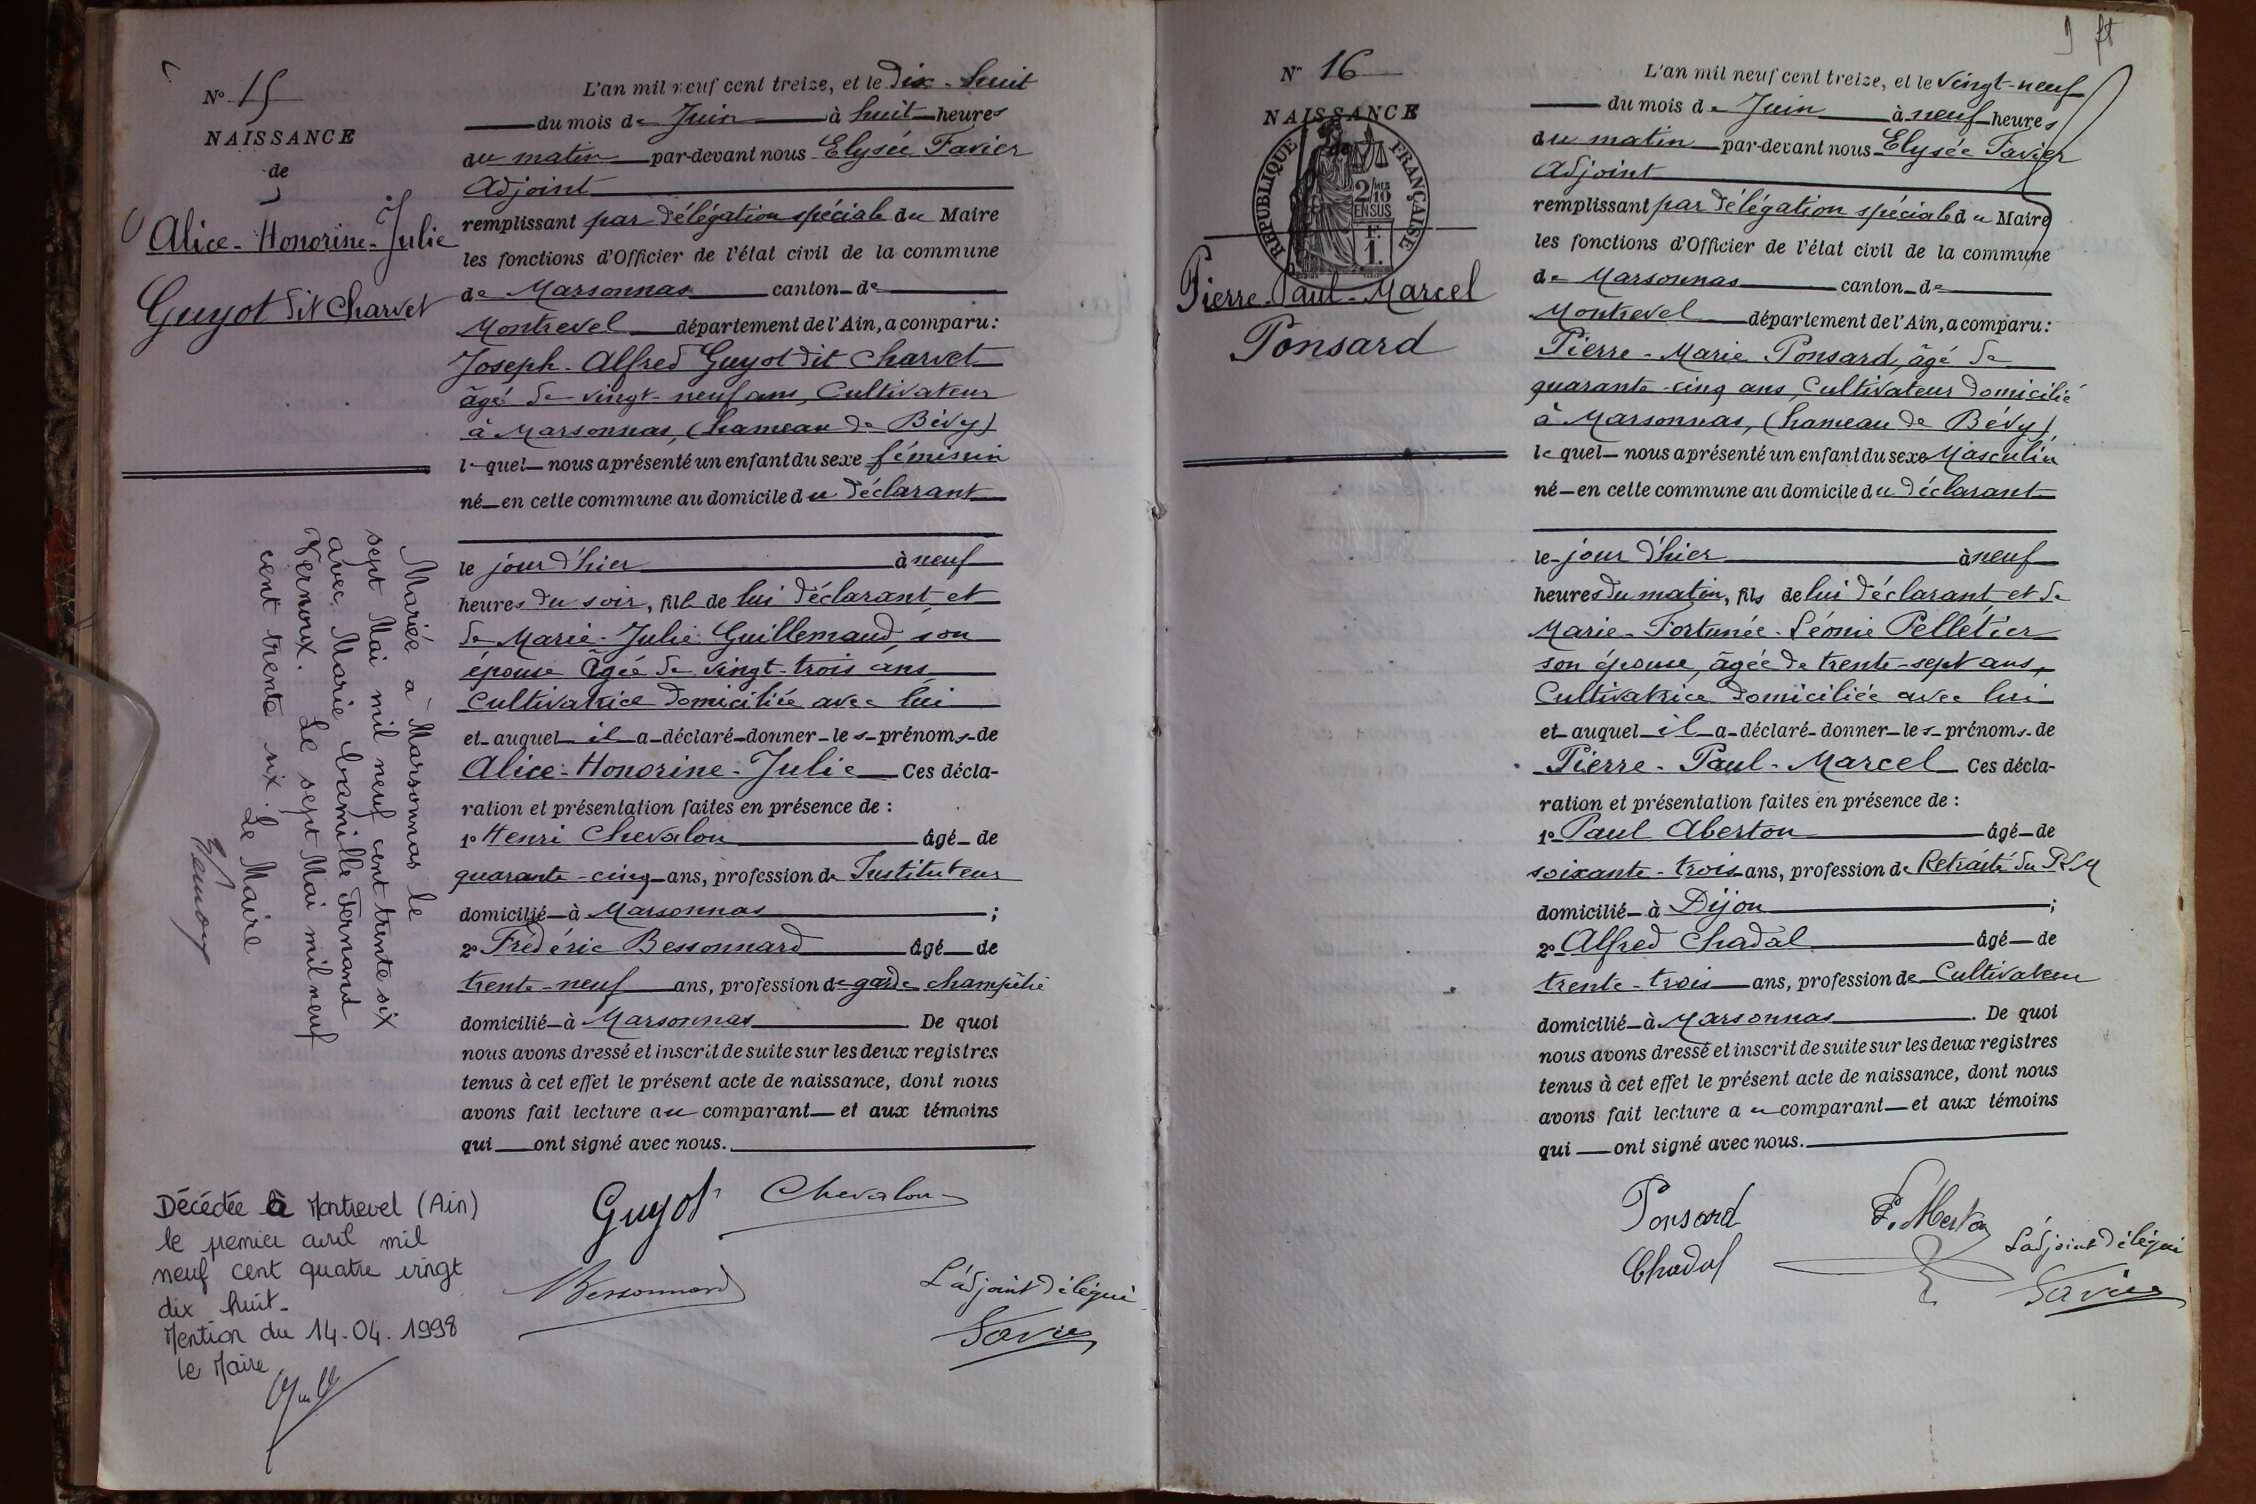 N° 15
NAISSANCE
de
Alice-Honorine-Julie
Guyot dit Charvet
Mariée à Marsonnas le
sept Mai mil neuf cent trente six
avec Marie Camille Fernand
Vernoux. Le sept Mai mil neuf
cent trente six. Le Maire
Décédée à Montrevel (Ain)
le premier avril mil
neuf cent quatre vingt
dix huit-
Mention du 14.04.1998
le Maire
L'an mil neuf cent treize, et le dix-huit
du mois de Juin à huit heures
du matin par-devant nous Elysée Favier
Adjoint
remplissant par délégation spéciale du Maire
les fonctions d'Officier de l'état civil de la commune
de Marsonnas canton de
Montrevel département de l'Ain, a comparu:
Joseph-Alfred Guyot dit Charvet
âgé de vingt-neuf ans, Cultivateur
à Marsonnas, (hameau de Bévy)
lequel nous a présenté un enfant du sexe féminin
né en cette commune au domicile du déclarant
le jour d'hier à neuf
heures du soir, fill de lui déclarant et
de Marie-Julie Guillemaud, son
épouse âgée de vingt-trois ans
Cultivatrice domiciliée avec lui
et auquel il a déclaré donner les prénoms de
Alice-Honorine-Julie Ces décla-
ration et présentation faites en présence de :
1° Henri Chevalon âgé de
quarante-cinq ans, profession de Instituteur
domicilié à Marsonnas ;
2° Frédéric Bessonnard âgé de
trente-neuf ans, profession de garde champêtre
domicilié à Marsonnas. De quoi
nous avons dressé et inscrit de suite sur les deux registres
tenus à cet effet le présent acte de naissance, dont nous
avons fait lecture au comparant et aux témoins
qui ont signé avec nous.
Guyot Chevalon
Bessonnard L'adjoint délégué
Favier
9
N° 16
NAISSANCE
de
RÉPUBLIQUE FRANÇAISE
2/10 mes
EN SUS
1F.
1.
Pierre-Paul-Marcel
Ponsard
L'an mil neuf cent treize, et le vingt-neuf
du mois de Juin à neuf heures
du matin par-devant nous Elysée Favier
Adjoint
remplissant par délégation spéciale du Maire
les fonctions d'Officier de l'état civil de la commune
de Marsonnas canton de
Montrevel département de l'Ain, a comparu:
Pierre-Marie Ponsard, âgé de
quarante-cinq ans, Cultivateur domicilié
à Marsonnas, (hameau de Bévy)
lequel nous a présenté un enfant du sexe Masculin
né en cette commune au domicile du déclarant
le jour d'hier à neuf
heures du matin, fils de lui déclarant et de
Marie-Fortunée-Léonie Pelletier
son épouse, âgée de trente-sept ans,
Cultivatrice domiciliée avec lui
et auquel il a déclaré donner les prénoms de
Pierre-Paul-Marcel Ces décla-
ration et présentation faites en présence de :
1° Paul Aberton âgé de
soixante-trois ans, profession de Retraité du PLM
domicilié à Dijon ;
2° Alfred Chadal âgé de
trente-trois ans, profession de Cultivateur
domicilié à Marsonnas. De quoi
nous avons dressé et inscrit de suite sur les deux registres
tenus à cet effet le présent acte de naissance, dont nous
avons fait lecture au comparant et aux témoins
qui ont signé avec nous.
Ponsard P. Aberton L'adjoint délégué
Chadal Favier